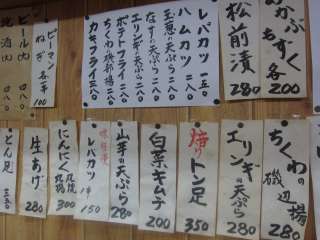 めかぶ
もずく
各200
松前漬
280
レバカツ 一五〇
ハムカツ 二八〇
玉葱の天ぷら 二八〇
なすの天ぷら 二八〇
エリンギの天ぷら 二八〇
ポテトフライ 二八〇
ちくわ磯部揚 二八〇
カキフライ 三八〇
ピーマン
ねぎ 各串100
ビール
ちくわの磯辺揚
280
エリンギの天ぷら
280
トン足
350
白菜キムチ
200
山芋の天ぷら
280
レバカツ
150
にんにく
300
生あげ
280
とん足
三五〇